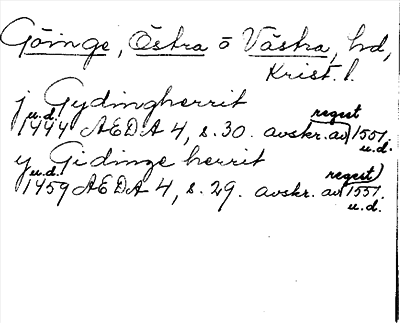 Göinge, Östra o Västra, hd,
Krist. l.
j Gydingherrit
u.d. 1444 AEDA 4, s. 30. avskr. av regest) 1551. u.d.
y Gidinge herrit
u.d. 1459 AEDA 4, s. 29. avskr. av regest) 1551. u.d.